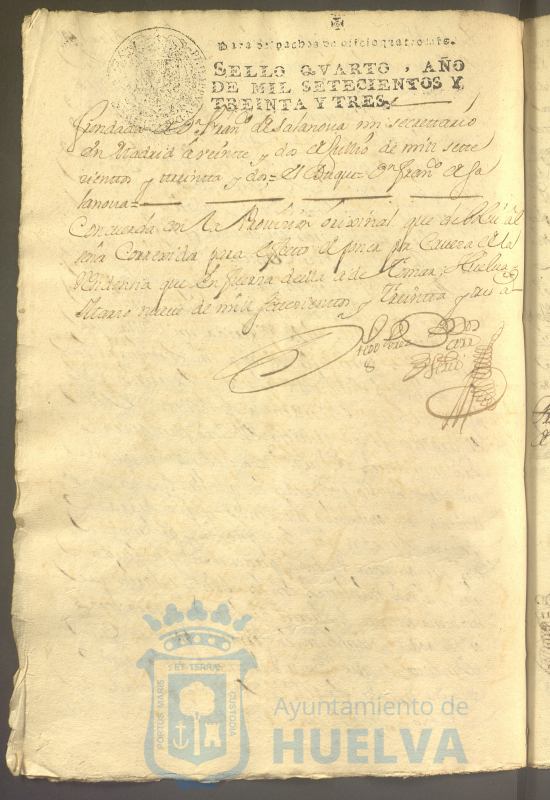 Para despachos de oficio quatro mrs.
SELLO QVARTO, AÑO
DE MIL SETECIENTOS Y
TREINTA Y TRES.
frendada de Dn. Franco. de Salanova mi secrettario
en Madrid a veinte y dos de Jullio de mil sette
cientos y treintta y dos = el Duque = Dn. Franco. de Sa
lanova =
Concuerda con la Provision orixinal que debolvi al
señor Correxidor para efecto de
que en fuerza della a de tomar, Huelva
Marzo nueve de mil settecientos y treintta y tres a.
PORTUS MARIS
ET TERRÆ
CUSTODIA
Ayuntamiento de
HUELVA